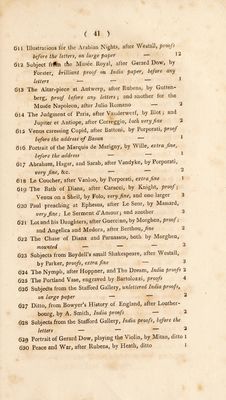 ( 41 )
611 Illustrations for the Arabian Nights, after Westall, proofs
before the letters, on large paper — 12
612 Subject from the Musée Royal, after Gerard Dow, by
Forster, brilliant proof on India paper, before any
letters — — 1
613 The Altar-piece at Antwerp, after Rubens, by Guttenberg,
proof before any letters; and another for the
Musée Napoleon, after Julio Romano — 2
614 The Judgment of Paris, after Vanderwerf, by Blot; and
Jupiter et Antiope, after Correggio, both very fine 2
615 Venus caressing Cupid, after Battoni, by Porporati, proof
before the address of Basan 1
616 Portrait of the Marquis de Marigny, by Wille, extra fine,
before the address — — 1
617 Abraham, Hagar, and Sarah, after Vandyke, by Porporati,
very fine, &c. — — 2
618 Le Coucher, after Vanloo, by Porporati, extra fine 1
619 The Bath of Diana, after Caracci, by Knight, proof;
Venus on a Shell, by Folo, very fine, and one larger 3
620 Paul preaching at Ephesus, after Le Seur, by Massard,
very fine; Le Serment d'Amour; and another 3
621 Lot and his Daughters, after Guercino, by Morghen, proof;
and Angelica and Medora, after Berthon, fine 2
622 The Chase of Diana and Parnassus, both by Morghen,
mounted — — 2
623 Subjects from Boydell's small Shakespeare, after Westall,
by Parker, proofs, extra fine — 3
624 The Nymph, after Hoppner, and The Dream, India proofs 2
625 The Portland Vase, engraved by Bartolozzi, proofs 4
626 Subjects from the Stafford Gallery, unlettered India proofs,
on large paper — — 2
627 Ditto, from Bowyer's History of England, after Loutherbourg,
by A. Smith, India proofs — 2
628 Subjects from the Stafford Gallery, India proofs, before the
letters — — — 2
629 Portrait of Gerard Dow, playing the Violin, by Mitan, ditto 1
630 Peace and War, after Rubens, by Heath, ditto 1